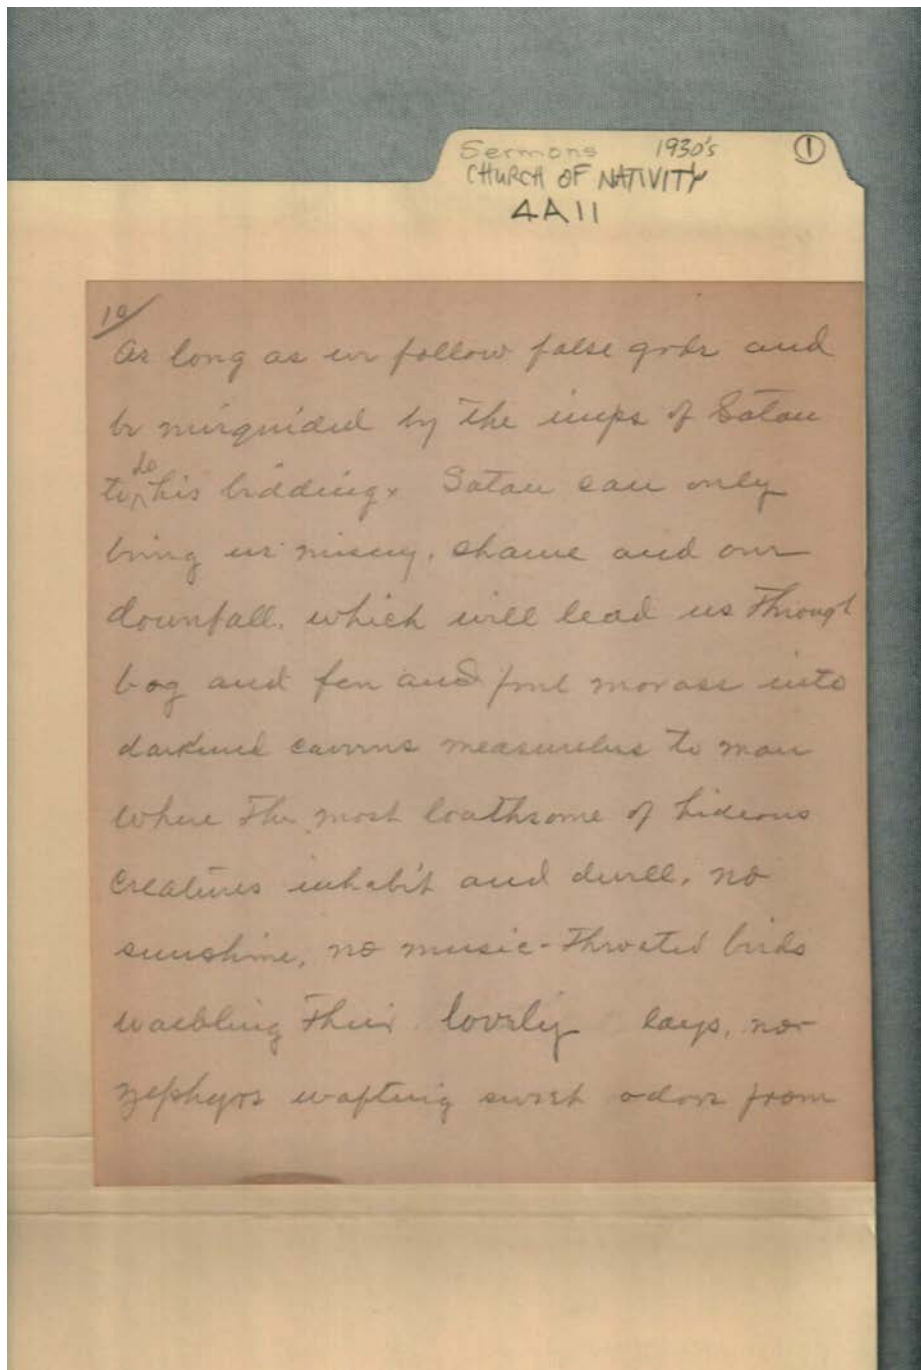 Sermons 1930's ①
CHURCH OF NATIVITY
4A11
10/
As long as we follow false gods and
be misguided by the imps of Satan
to do his bidding. Satan can only
bring us misery, shame and our
downfall, which will lead us through
bog and fen and foul morass into
darkened caverns measureless to man
where the most loathsome of hideous
creatures inhabit and dwell, no
sunshine, no music-throated birds
warbling their lovely lays, nor
zephyrs wafting sweet odors from